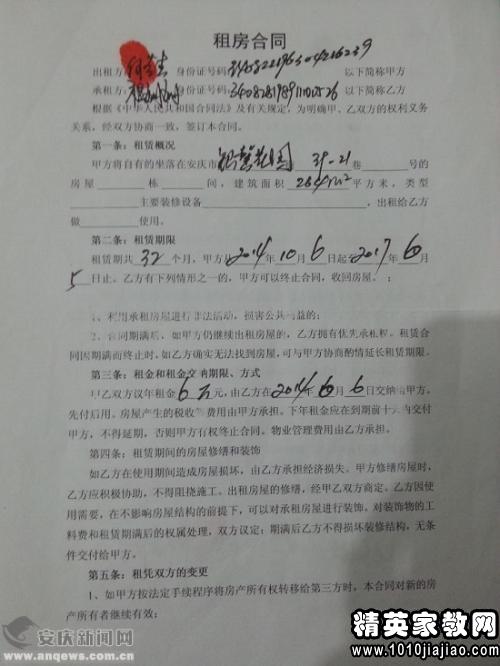 租房合同
出租方 身份证号码: 以下简称甲方
承租方: 身份证号码: 以下简称乙方
根据《中华人民共和国合同法》及有关规定，为明确甲、乙双方的权利义务
关系，经双方协商一致，签订本合同。
第一条：租赁概况
甲方将自有的坐落在安庆市 花园 39-21 巷 号的
房屋 栋 间，建筑面积 264m² 平方米，类型
主要装修设备 ，出租给乙方
做 使用。
第二条：租赁期限
租赁期共 32 个月，甲方从 2014 年 10 月 6 日起至 2017 年 6 月
5 日止。乙方有下列情形之一的，甲方可以终止合同，收回房屋。：
1、利用承租房屋进行非法活动，损害公共利益的；
2、合同期满后，如甲方仍继续出租房屋的，乙方拥有优先承租权。租赁合
同因期满而终止时，如乙方确实无法找到房屋，可与甲方协商酌情延长租赁期限。
第三条：租金和租金交纳期限、方式
甲乙双方议年租金 6万 元，由乙方在 2014 年 月 6 日交纳给甲方。
先付后用。房屋产生的税收等费用由甲方承担。下年租金应在到期前十天内交付
甲方，不得延期，否则甲方有权终止合同。物业管理费用由乙方承担。
第四条：租赁期间的房屋修缮和装饰
如乙方在使用期间造成房屋损坏，由乙方承担经济损失。甲方修缮房屋时，
乙方应积极协助，不得阻挠施工。出租房屋的修缮，经甲乙双方商定。乙方因使
用需要，在不影响房屋结构的前提下，可以对承租房屋进行装饰。对装饰物的工
料费和租赁期满后的权属处理，双方议定：期满后乙方不得损坏装修结构，无条
件交付给甲方。
第五条：租凭双方的变更
1、如甲方按法定手续程序将房产所有权转移给第三方时，本合同对新的房
产所有者继续有效；
安庆新闻网
www.anqews.com.cn
精英家教网
www.1010jiajiao.com